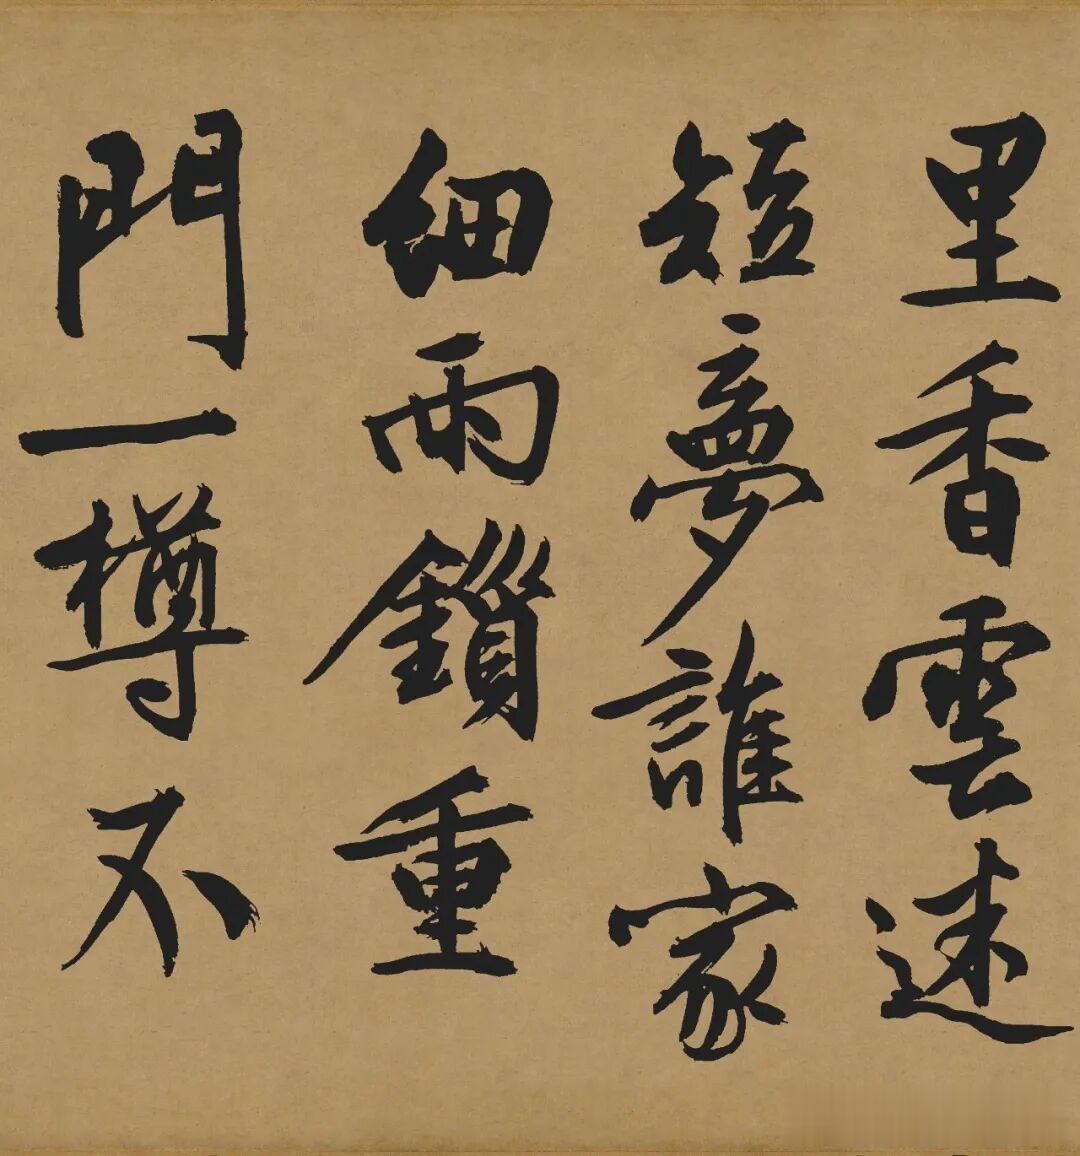 里香雲迷
短夢誰家
細雨鎖重
門一樽不